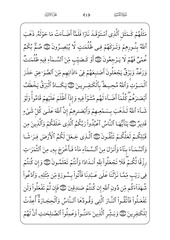 مَثَلُهُمْ كَمَثَلِ ٱلَّذِى ٱسْتَوْقَدَ نَارًا فَلَمَّآ أَضَآءَتْ مَا حَوْلَهُۥ ذَهَبَ
ٱللَّهُ بِنُورِهِمْ وَتَرَكَهُمْ فِى ظُلُمَٰتٍ لَّا يُبْصِرُونَ صُمٌّۢ بُكْمٌ
عُمْىٌ فَهُمْ لَا يَرْجِعُونَ أَوْ كَصَيِّبٍ مِّنَ ٱلسَّمَآءِ فِيهِ ظُلُمَٰتٌ
وَرَعْدٌ وَبَرْقٌ يَجْعَلُونَ أَصَٰبِعَهُمْ فِىٓ ءَاذَانِهِم مِّنَ ٱلصَّوَٰعِقِ حَذَرَ
ٱلْمَوْتِ وَٱللَّهُ مُحِيطٌۢ بِٱلْكَٰفِرِينَ يَكَادُ ٱلْبَرْقُ يَخْطَفُ
أَبْصَٰرَهُمْ كُلَّمَآ أَضَآءَ لَهُم مَّشَوْا۟ فِيهِ وَإِذَآ أَظْلَمَ عَلَيْهِمْ قَامُوا۟ وَلَوْ
شَآءَ ٱللَّهُ لَذَهَبَ بِسَمْعِهِمْ وَأَبْصَٰرِهِمْ إِنَّ ٱللَّهَ عَلَىٰ كُلِّ شَىْءٍ
قَدِيرٌ يَٰٓأَيُّهَا ٱلنَّاسُ ٱعْبُدُوا۟ رَبَّكُمُ ٱلَّذِى خَلَقَكُمْ وَٱلَّذِينَ مِن
قَبْلِكُمْ لَعَلَّكُمْ تَتَّقُونَ ٱلَّذِى جَعَلَ لَكُمُ ٱلْأَرْضَ فِرَٰشًا
وَٱلسَّمَآءَ بِنَآءً وَأَنزَلَ مِنَ ٱلسَّمَآءِ مَآءً فَأَخْرَجَ بِهِۦ مِنَ ٱلثَّمَرَٰتِ
رِزْقًا لَّكُمْ فَلَا تَجْعَلُوا۟ لِلَّهِ أَندَادًا وَأَنتُمْ تَعْلَمُونَ وَإِن كُنتُمْ
فِى رَيْبٍ مِّمَّا نَزَّلْنَا عَلَىٰ عَبْدِنَا فَأْتُوا۟ بِسُورَةٍ مِّن مِّثْلِهِۦ وَٱدْعُوا۟
شُهَدَآءَكُم مِّن دُونِ ٱللَّهِ إِن كُنتُمْ صَٰدِقِينَ فَإِن لَّمْ تَفْعَلُوا۟ وَلَن
تَفْعَلُوا۟ فَٱتَّقُوا۟ ٱلنَّارَ ٱلَّتِى وَقُودُهَا ٱلنَّاسُ وَٱلْحِجَارَةُ أُعِدَّتْ
لِلْكَٰفِرِينَ وَبَشِّرِ ٱلَّذِينَ ءَامَنُوا۟ وَعَمِلُوا۟ ٱلصَّٰلِحَٰتِ أَنَّ لَهُمْ